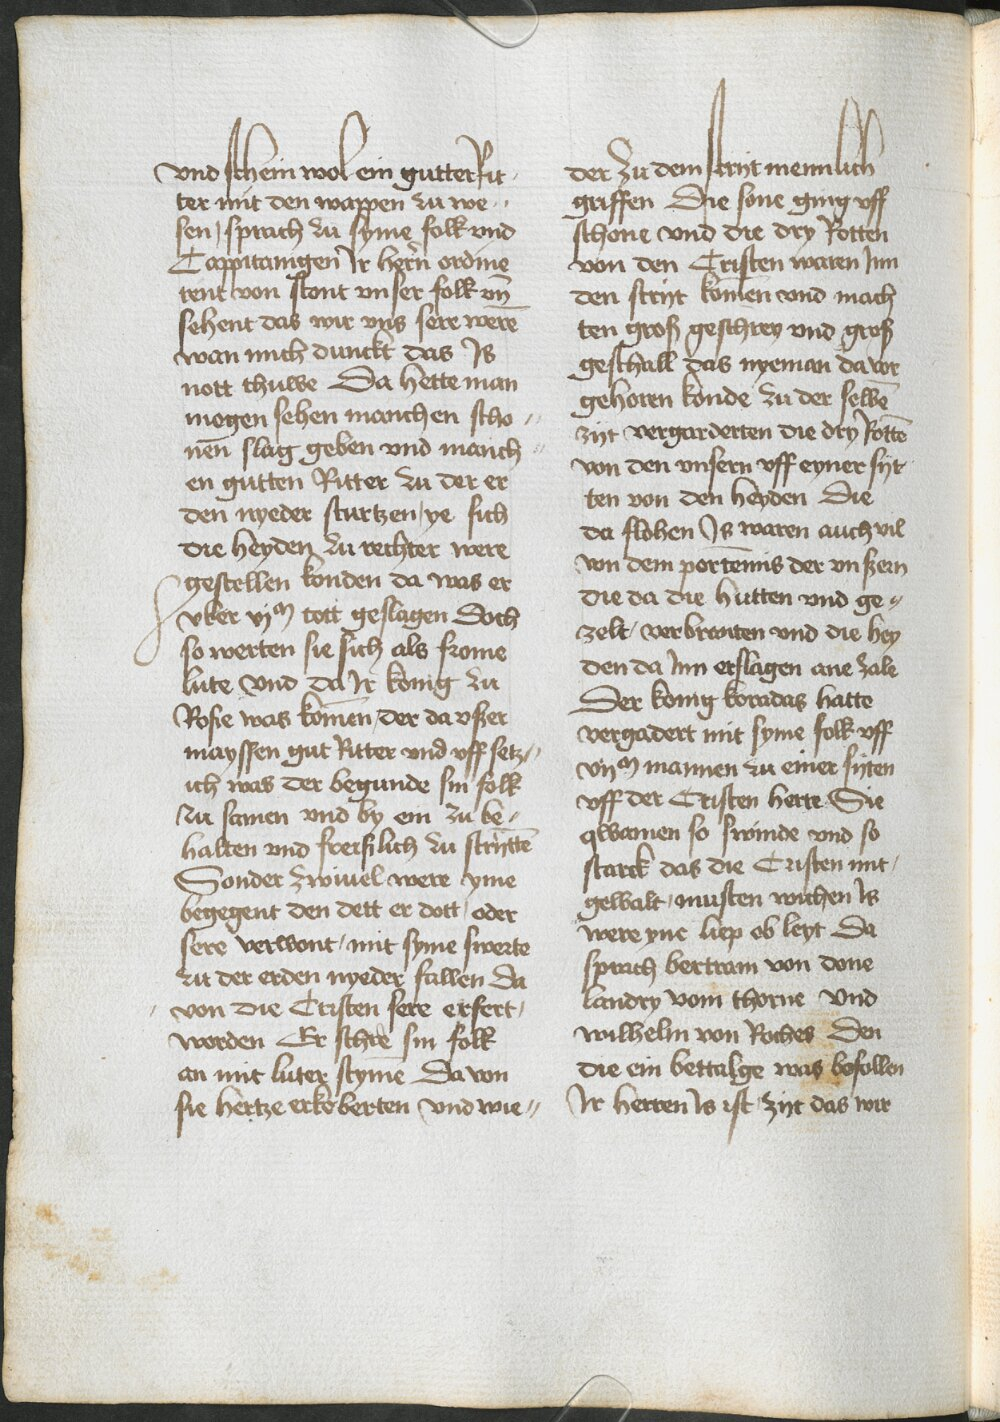 vnd schein wol ein gutter Rit
ter mit den wappen zu we=
sen / sprach zu syme folk vnd
Cappitanigen Ir hern ordine
rent von stont vnser folk vn̄
sehent das wir vns sere werē
wan mich dunckt das Is
nott thuwe Da hette man
mogen sehen manchen scho=
nen slag geben vnd manch=
en gutten Ritter zu der er
den nyeder sturtzen / ye sich
die heyden zu rechter were
gestellen konden da was er
vber vjᵐ tott geslagen Doch
so werten sie sich als frome
lute Vnd da Ir konig zu
Rosse was komen / der da vszer
mayssen gut Ritter vnd vff setz=
ich was der begunde sin folk
zu samen vnd by ein zu be=
halten vnd freiszlich zu strytē
Sonder zwiuel were yme
begegent den dett er dott / oder
sere verwont / mit syme swerte
zu der erden nyeder fallen Da
von die Cristen sere erfert /
worden Er schre sin folk
an mit luter styme Da von
sie hertze erkoberten Vnd wie=
der zu dem stryt mennlich
griffen Die sone ging vff
schone vnd die dry Rotten
von den Cristen waren Inn
den stryt komen vnd mach
ten grosz geschrey vnd grosz
geschall das nyeman da vor
gehoren konde zu der selbē
zijt vergarderten die dry Rottē
von den vnsern vff eyner syt
ten von den heyden Die
da flohen Is waren auch vil
von dem portennis der vnszern
die da die hutten vnd ge=
zelt / verbranten vnd die hey
den da Inn erslagen ane zale
Der konig koradas hatte
vergadert mit syme folk vff
vijᵐ mannen zu einer syten
vff der Cristen herre Sie
qwamen so swinde vnd so
starck das die Cristen mit /
gewalt / musten wichen Is
were yne liep ob leyt Da
sprach bertram von done
landry vom thorne Vnd
wilhelm von Roches Den
die ein bettalge was befollen
Ir herren Is ist zijt das wir